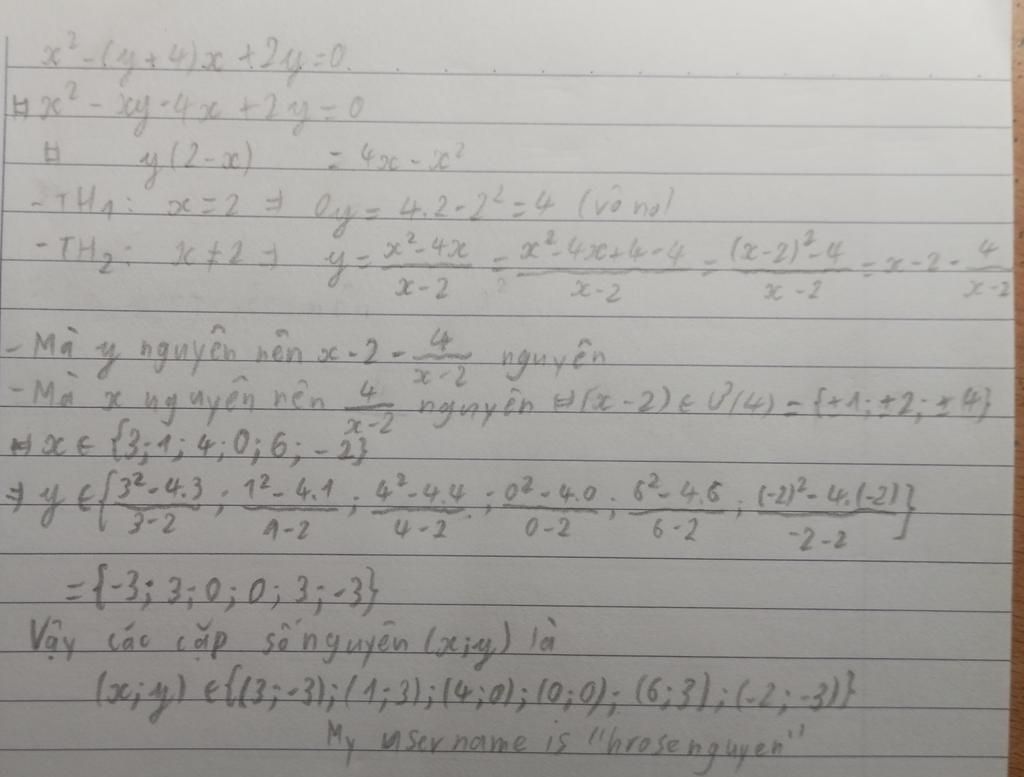 x² - (y + 4)x + 2y = 0.
⇔ x² - xy - 4x + 2y = 0
⇔ y(2 - x) = 4x - x²
- TH₁: x = 2 ⇒ 0y = 4.2 - 2² = 4 (vô no)
- TH₂: x ≠ 2 ⇒ y = (x² - 4x)/(x - 2) = (x² - 4x + 4 - 4)/(x - 2) = ((x - 2)² - 4)/(x - 2) = x - 2 - 4/(x - 2)
- Mà y nguyên nên x - 2 - 4/(x - 2) nguyên
- Mà x nguyên nên 4/(x - 2) nguyên ⇔ (x - 2) ∈ Ư(4) = {±1; ±2; ±4}
⇔ x ∈ {3; 1; 4; 0; 6; -2}
⇒ y ∈ {(3² - 4.3)/(3 - 2); (1² - 4.1)/(1 - 2); (4² - 4.4)/(4 - 2); (0² - 4.0)/(0 - 2); (6² - 4.6)/(6 - 2); ((-2)² - 4.(-2))/(-2 - 2)}
= {-3; 3; 0; 0; 3; -3}
Vậy các cặp số nguyên (x; y) là
(x; y) ∈ {(3; -3); (1; 3); (4; 0); (0; 0); (6; 3); (-2; -3)}
My username is "hrosenguyen"